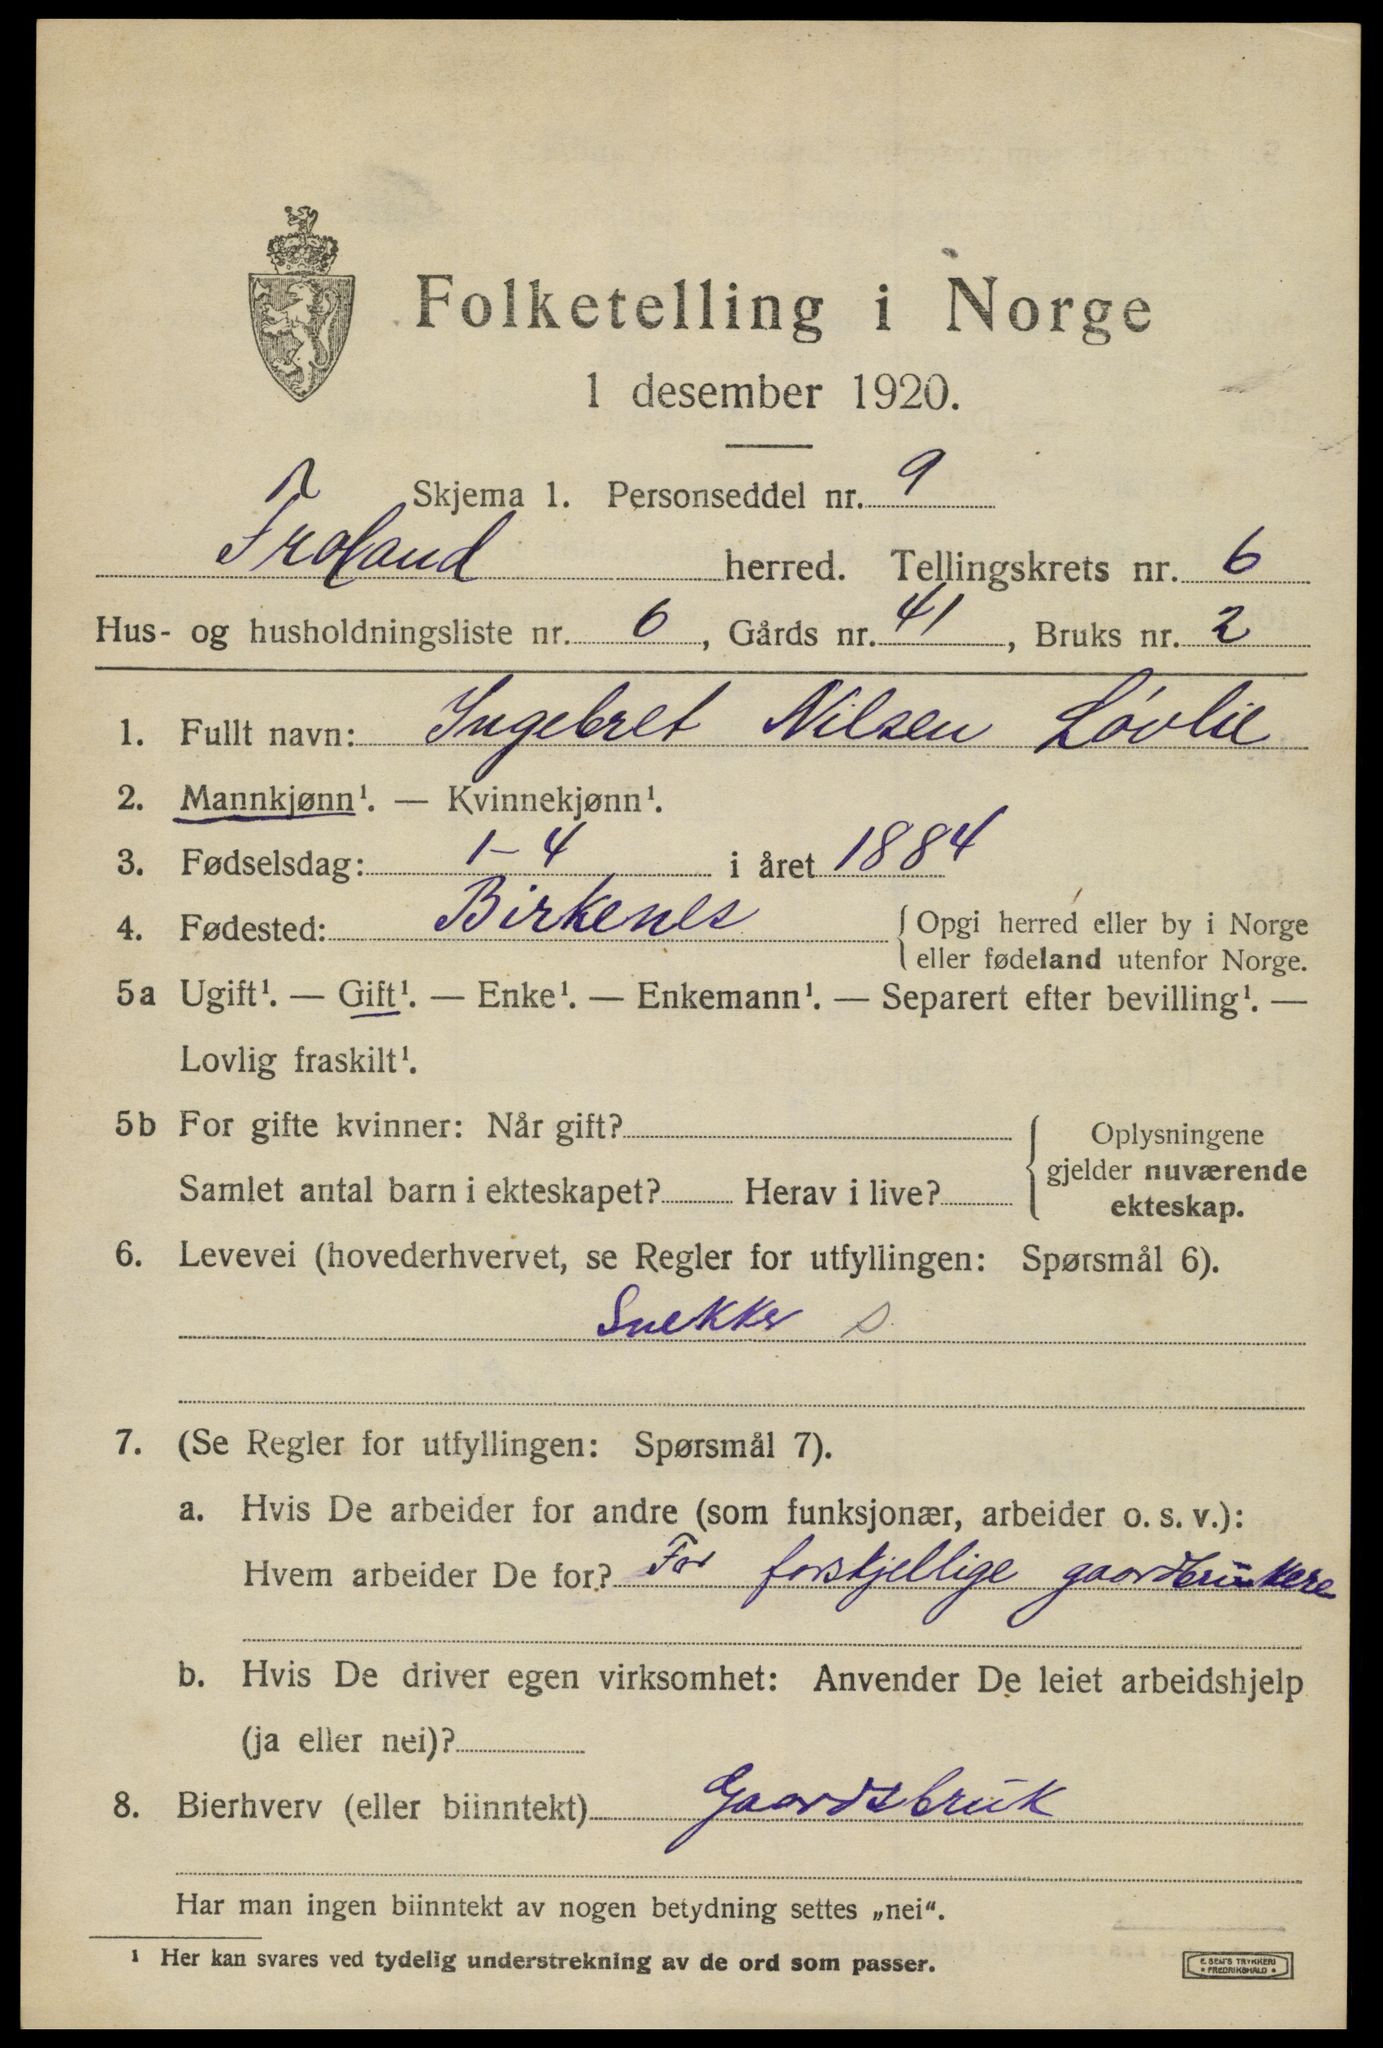 Folketelling i Norge
1 desember 1920.
Skjema 1. Personseddel nr. 9
Froland herred. Tellingskrets nr. 6
Hus- og husholdningsliste nr. 6, Gårds nr. 41, Bruks nr. 2
1. Fullt navn: Ingebret Nilsen Løvlie
2. Mannkjønn¹. — Kvinnekjønn¹.
3. Fødselsdag: 1-4 i året 1884
4. Fødested: Birkenes {Opgi herred eller by i Norge
eller fødeland utenfor Norge.
5a Ugift¹. — Gift¹. — Enke¹. — Enkemann¹. — Separert efter bevilling¹. —
Lovlig fraskilt¹.
5b For gifte kvinner: Når gift?
Samlet antal barn i ekteskapet? Herav i live?
{Oplysningene
gjelder nuværende
ekteskap.
6. Levevei (hovederhvervet, se Regler for utfyllingen: Spørsmål 6).
Snekker s
7. (Se Regler for utfyllingen: Spørsmål 7).
a. Hvis De arbeider for andre (som funksjonær, arbeider o. s. v.):
Hvem arbeider De for? For forskjellige gaardbrukere
b. Hvis De driver egen virksomhet: Anvender De leiet arbeidshjelp
(ja eller nei)?
8. Bierhverv (eller biinntekt) Gaardsbruk
Har man ingen biinntekt av nogen betydning settes „nei“.
¹ Her kan svares ved tydelig understrekning av de ord som passer.
E. SEM'S TRYKKERI
* FREDRIKSHALD *